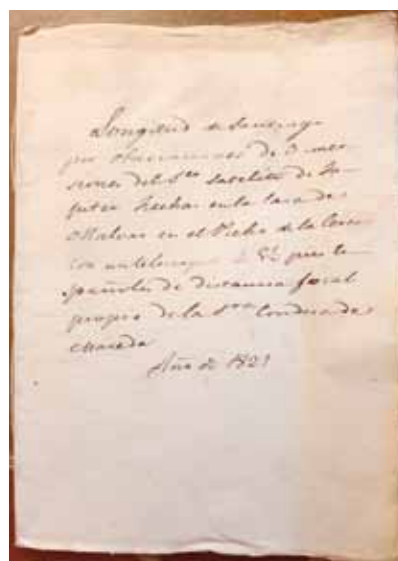 Longitud de Santiago
por observaciones de 3 inmer
siones del 1er satelite de Ju-
piter hechas en la Casa de
Matvas en el Picho de la Cerca
con un telescopio de 8½ pies es-
pañoles de distancia focal
propio de la Sra Condesa de
Maceda
Año de 1821